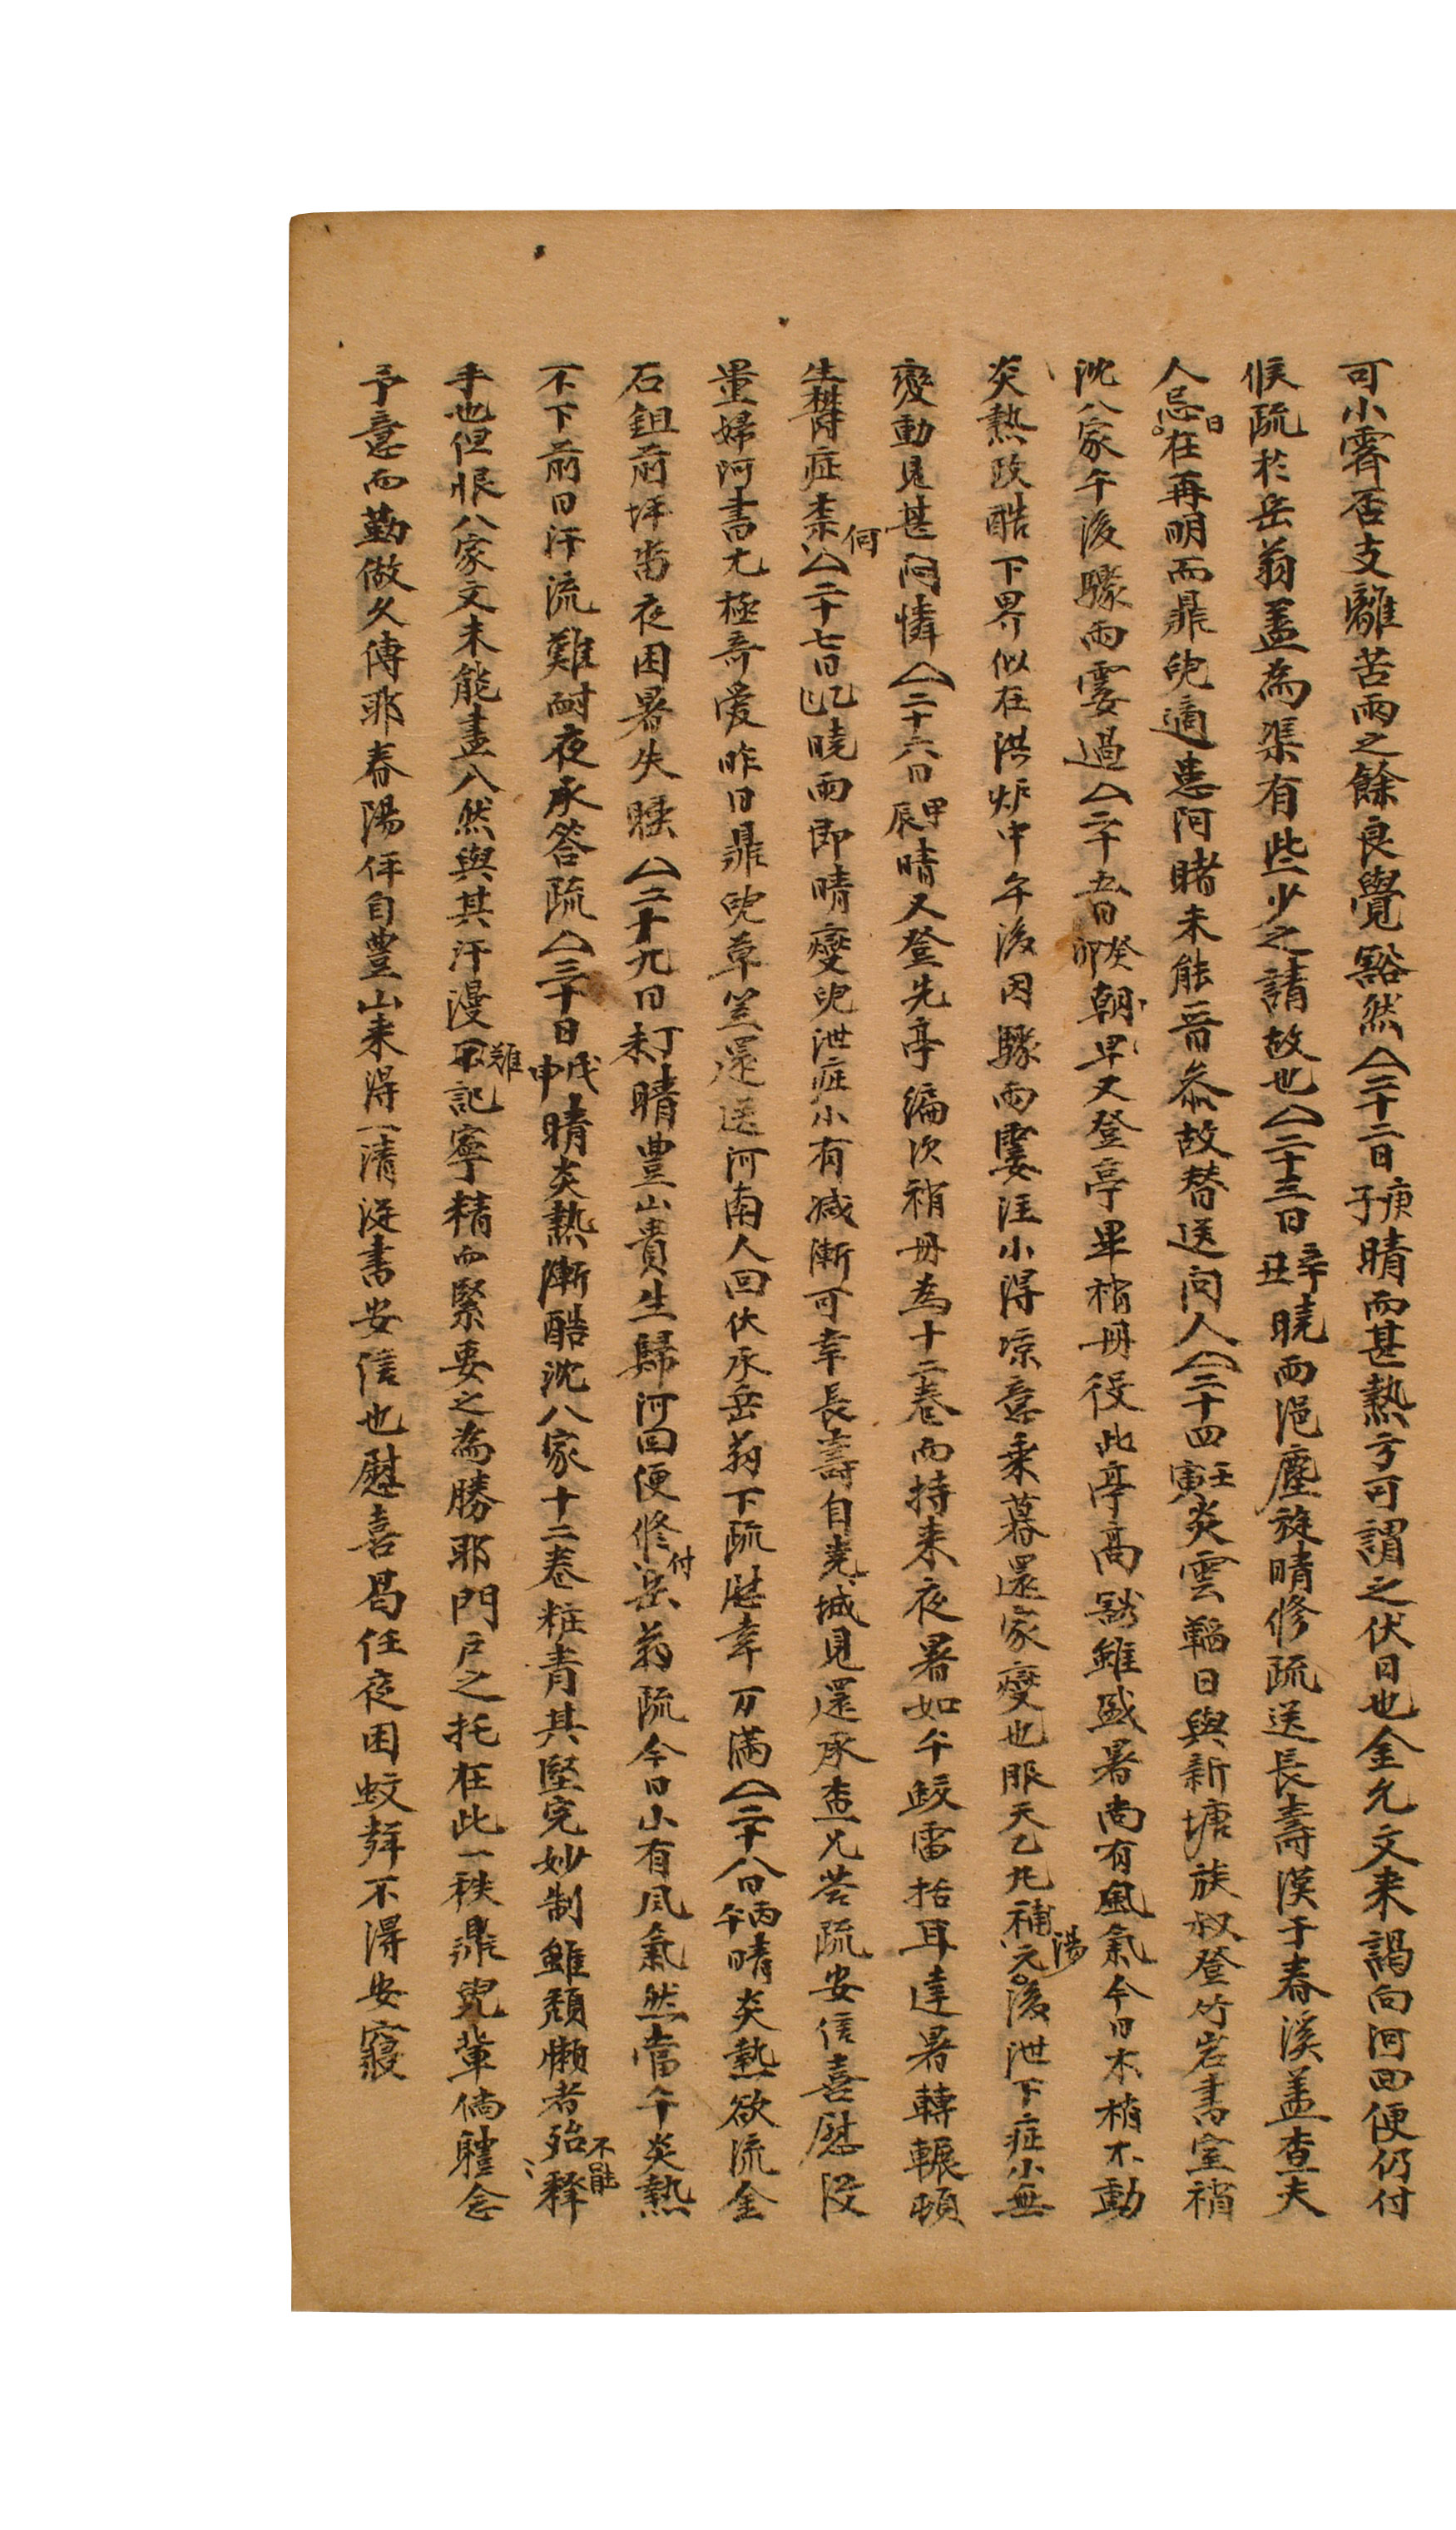 可小霽否支離苦雨之餘良覺豁然△二十二日庚子晴而甚熱方可謂之伏日也金允文來謁向河回便仍付
候疏於岳翁盖為渠有些少之請故也△二十三日辛丑曉雨浥塵旋晴修疏送長壽漢于春溪盖査夫
人忌日在再明而鼎兒適患阿睹未能晉參故替送問人△二十四壬寅炎雲韜日與新塘族叔登竹岩書室稍
沈八家午後驟雨霎過△二十五日癸卯朝早又登亭畢稍冊役此亭高豁雖盛暑尚有風氣今日木梢不動
炎熱政酷下界似在洪炉中午後因驟雨霎注小得凉意乘暮還家燮也服天乙丸補元湯後泄下症小無
變動見甚悶憐△二十六日甲辰晴又登先亭編次稍冊為十二卷而持來夜暑如午蚊雷括耳達暑轉輾頓
生欝症柰何△二十七日乙巳曉雨即晴燮兒泄症小有减漸可幸長壽自尭城見還承査兄答疏安信喜慰沒
量婦阿書尤極奇愛昨日鼎兒草笠還送河南人回伏承岳翁下疏慰幸万滿△二十八日丙午晴炎熱欲流金
石鉏前坪畓夜困暑失睡△二十九日丁未晴豊山貴生歸河回便修付岳翁疏今日小有风氣然當午炎熱
不下前日汗流難耐夜承答疏△三十日戊申晴炎熱漸酷沈八家十二卷粧青其堅完妙制雖頹懶者殆不能釋
手也但恨八家文未能盡入然與其汗漫難記寧精而緊要之為勝耶門戶之托在此一秩鼎兒輩倘軆念
予意而勤做久傳耶春陽伻自豊山来得一清涎書安信也慰喜曷任夜困蚊聲不得安寢